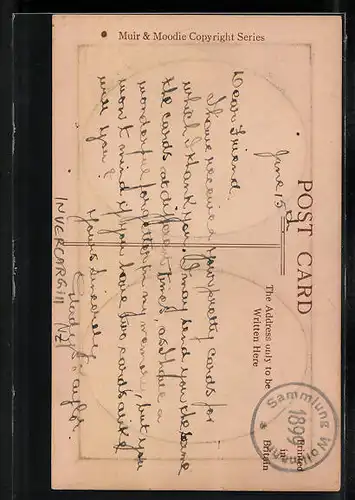 Muir & Moodie Copyright Series
POST CARD
The Address only to be
Written Here
Printed
in
Britain
June 15
Dear Friend,
I have received your pretty cards for
which I thank you. I may send you the same
the cards at different times, as I have a
wonderful forgetter in my memory, but you
won't mind if you have two cards alike
will you?
Yours Sincerely
Gladys Taylor.
INVERCARGILL NZ
Sammlung
1899